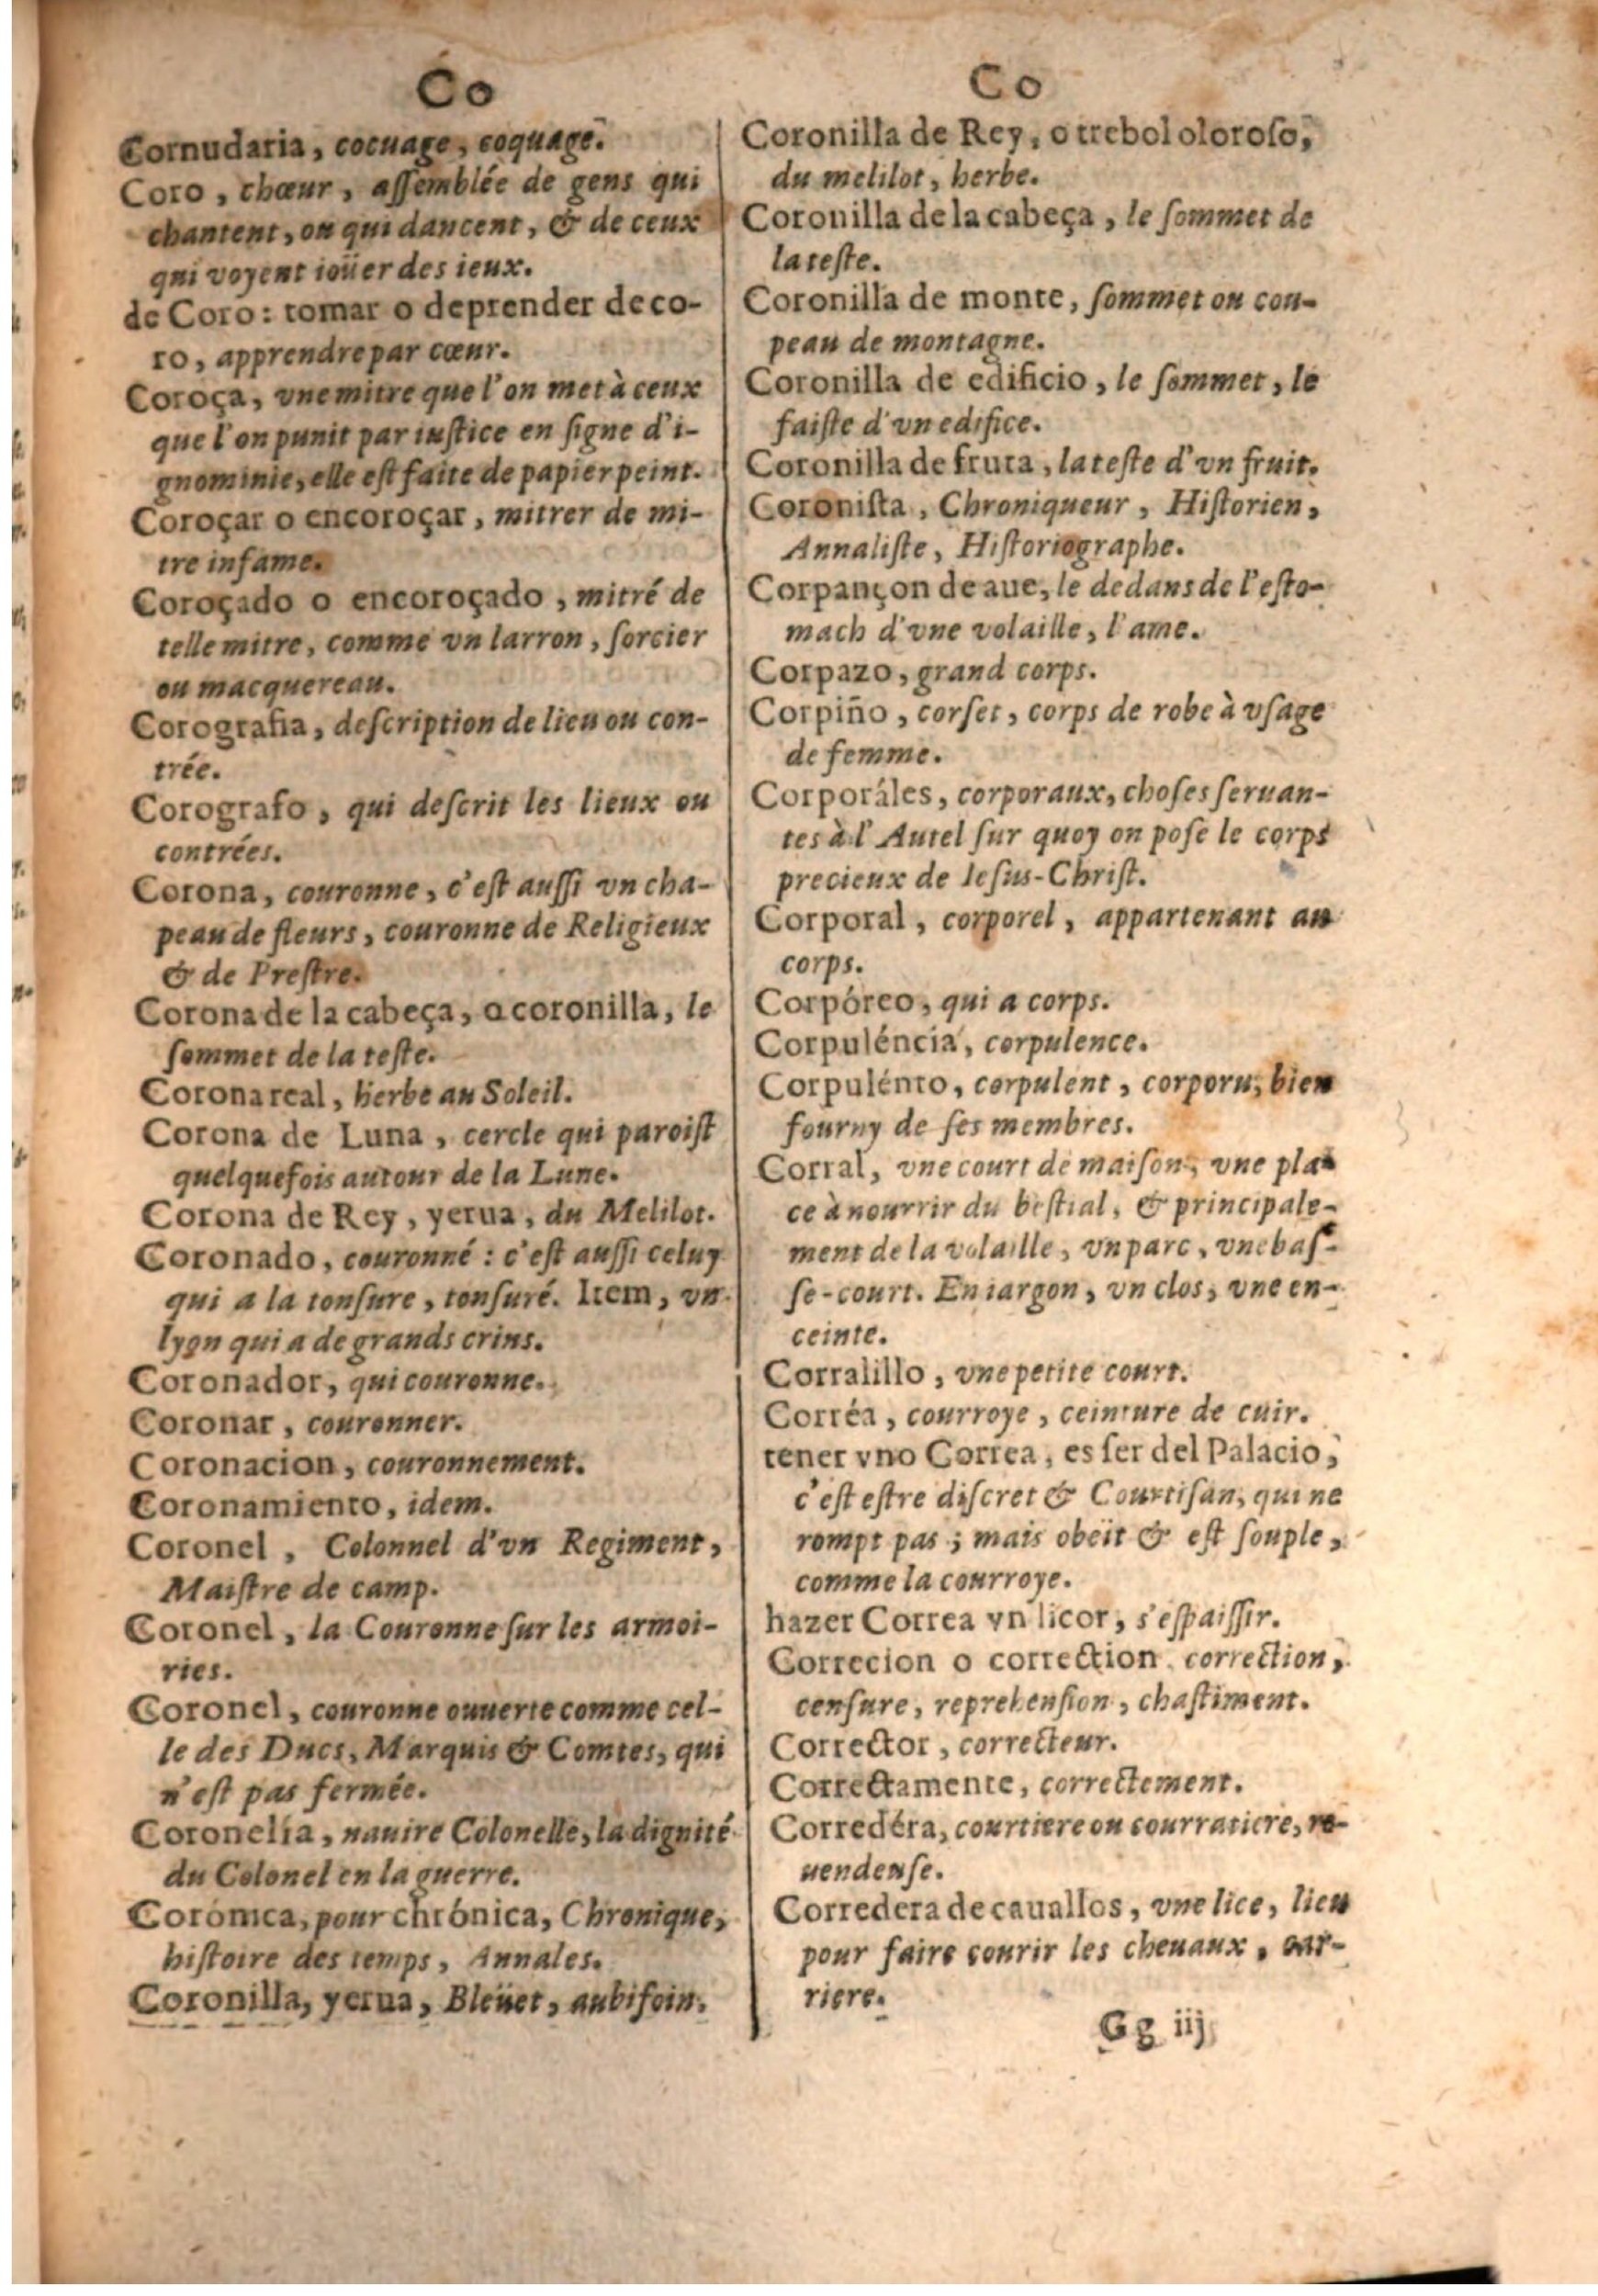 Co
Cornudaria, cocuage, coquage.
Coro, chœur, aſſemblée de gens qui
chantent, ou qui dancent, & de ceux
qui voyent ioüer des ieux.
de Coro: tomar o deprender de co-
ro, apprendre par cœur.
Coroça, vne mitre que l'on met à ceux
que l'on punit par iuſtice en ſigne d'i-
gnominie, elle eſt faite de papier peint.
Coroçar o encoroçar, mitrer de mi-
tre infame.
Coroçado o encoroçado, mitré de
telle mitre, comme vn larron, ſorcier
ou macquereau.
Corografia, deſcription de lieu ou con-
trée.
Corografo, qui deſcrit les lieux ou
contrées.
Corona, couronne, c'eſt auſſi vn cha-
peau de fleurs, couronne de Religieux
& de Preſtre.
Corona de la cabeça, o coronilla, le
ſommet de la teſte.
Corona real, herbe au Soleil.
Corona de Luna, cercle qui paroiſt
quelquefois autour de la Lune.
Corona de Rey, yerua, du Melilot.
Coronado, couronné : c'eſt auſſi celuy
qui a la tonſure, tonſuré. Item, vn
lyon qui a de grands crins.
Coronador, qui couronne.
Coronar, couronner.
Coronacion, couronnement.
Coronamiento, idem.
Coronel, Colonnel d'vn Regiment,
Maiſtre de camp.
Coronel, la Couronne ſur les armoi-
ries.
Coronel, couronne ouuerte comme cel-
le des Ducs, Marquis & Comtes, qui
n'eſt pas fermée.
Coronelía, nauire Colonelle, la dignité
du Colonel en la guerre.
Corónica, pour chrónica, Chronique,
hiſtoire des temps, Annales.
Coronilla, yerua, Bleüet, aubifoin.
Co
Coronilla de Rey, o trebol oloroſo,
du melilot, herbe.
Coronilla de la cabeça, le ſommet de
la teſte.
Coronilla de monte, ſommet ou cou-
peau de montagne.
Coronilla de edificio, le ſommet, le
faiſte d'vn edifice.
Coronilla de fruta, la teſte d'vn fruit.
Coroniſta, Chroniqueur, Hiſtorien,
Annaliſte, Hiſtoriographe.
Corpançon de aue, le dedans de l'eſto-
mach d'vne volaille, l'ame.
Corpazo, grand corps.
Corpiño, corſet, corps de robe à vſage
de femme.
Corporáles, corporaux, choſes ſeruan-
tes à l'Autel ſur quoy on poſe le corps
precieux de Ieſus-Chriſt.
Corporal, corporel, appartenant au
corps.
Corpóreo, qui a corps.
Corpuléncia, corpulence.
Corpulénto, corpulent, corporu, bien
fourny de ſes membres.
Corral, vne court de maiſon, vne pla-
ce à nourrir du beſtial, & principale-
ment de la volaille, vn parc, vne baſ-
ſe-court. En iargon, vn clos, vne en-
ceinte.
Corralillo, vne petite court.
Corréa, courroye, ceinture de cuir.
tener vno Correa, es ſer del Palacio,
c'eſt eſtre diſcret & Courtiſan, qui ne
rompt pas ; mais obeït & eſt ſouple,
comme la courroye.
hazer Correa vn licor, s'eſpaiſſir.
Correcion o correction, correction,
cenſure, reprehenſion, chaſtiment.
Corrector, correcteur.
Correctamente, correctement.
Corredéra, courtiere ou courratiere, re-
uendeuſe.
Corredera de cauallos, vne lice, lieu
pour faire courir les cheuaux, car-
riere.
Gg iij